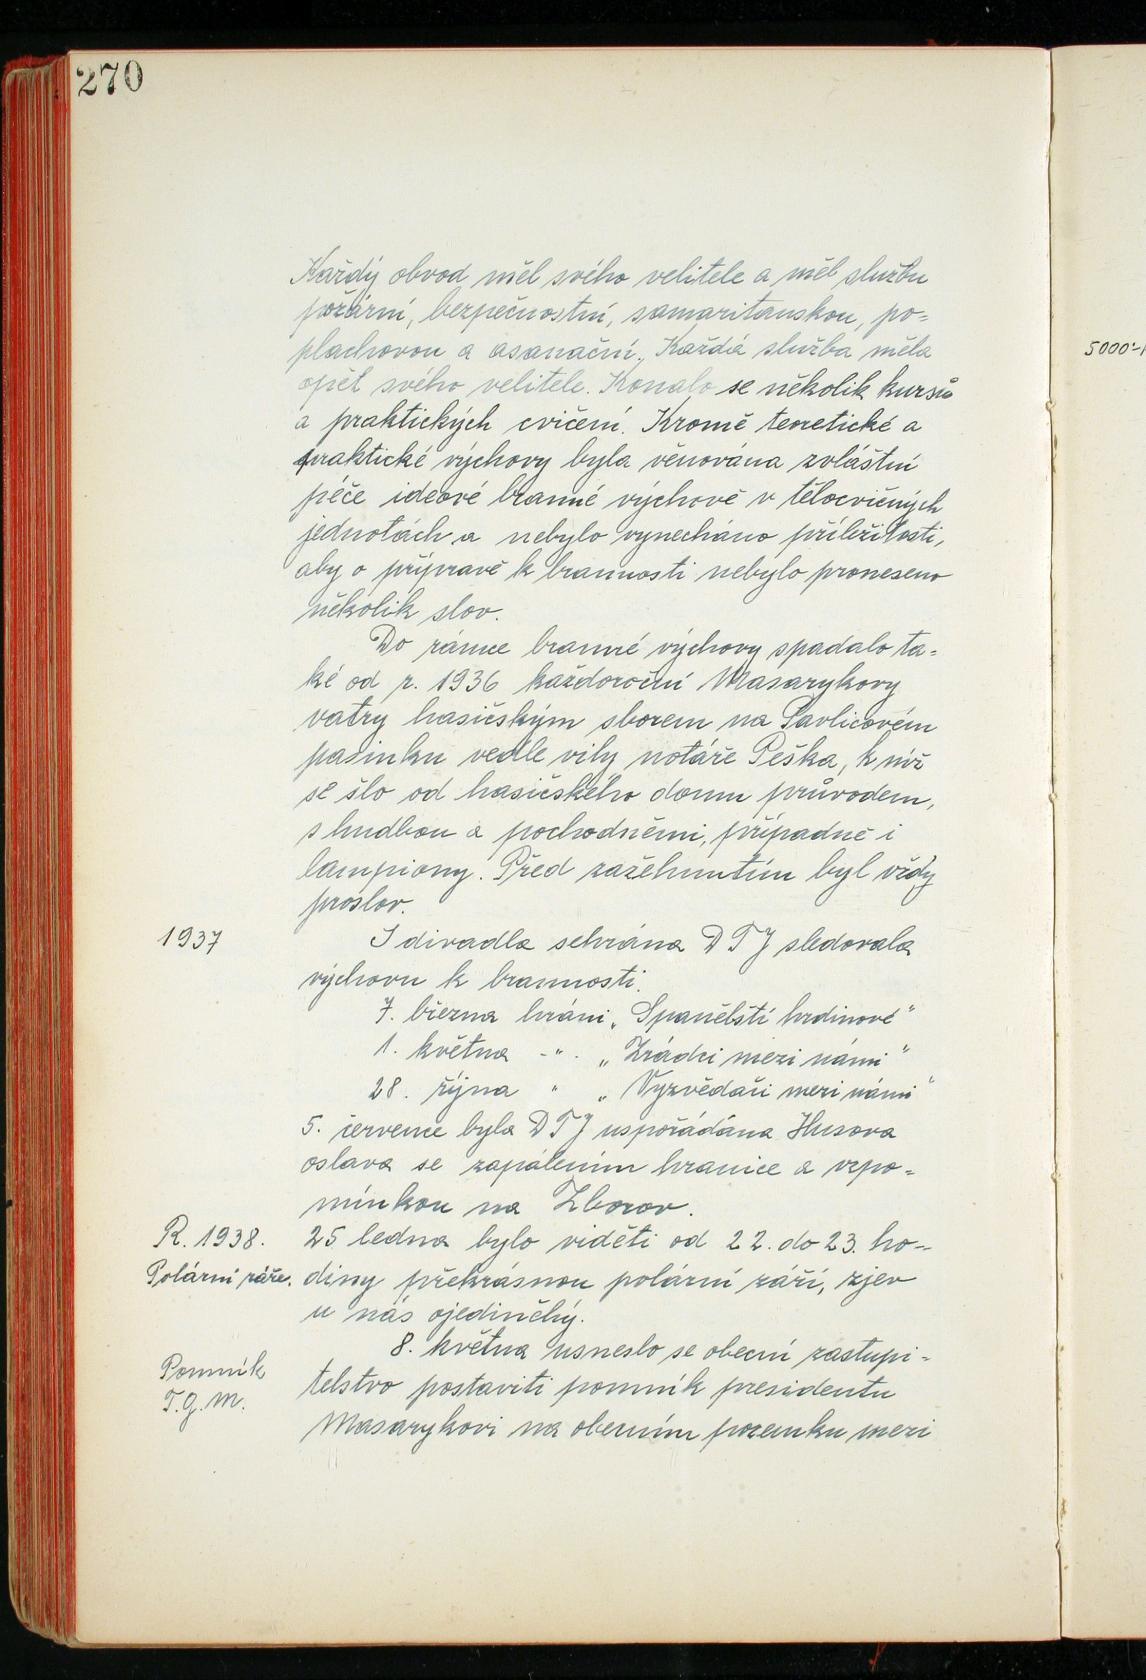 270
Každý obvod měl svého velitele a měl službu
požární, bezpečnostní, samaritanskou, po=
plachovou a asanační. Každá služba měla
opět svého velitele. Konalo se několik kursů
a praktických cvičení. Kromě teoretické a
praktické výchovy byla věnována zvláštní
péče ideové branné výchově v tělocvičných
jednotách a nebylo vynecháno příležitosti,
aby o přípravě k brannosti nebylo proneseno
několik slov.
Do rámce branné výchovy spadalo ta=
ké od r. 1936 každoroční Masarykovy
vatry hasičským sborem na Pavlicovém
pasinku vedle vily notáře Peška, k níž
se šlo od hasičského domu průvodem,
s hudbou a pochodněmi, případně i
lampiony. Před zažehnutím byl vždy
proslov.
1937
I divadla sehrána DTJ sledovala
výchovu k brannosti.
7. března hráni „Spanělští hrdinové"
1. května -"- „Zrádci mezi námi"
28. října " „Vyzvědači mezi námi"
5. července byla DTJ uspořádána Husova
oslava se zapálením hranice a vzpo=
mínkou na Zborov.
R. 1938. 25 ledna bylo viděti od 22. do 23. ho-
Polární záře. diny překrásnou polární září, zjev
u nás ojedinělý.
8. května usneslo se obecní zastupi-
Pomník telstvo postaviti pomník presidentu
T.G.M. Masarykovi na obecním pozemku mezi